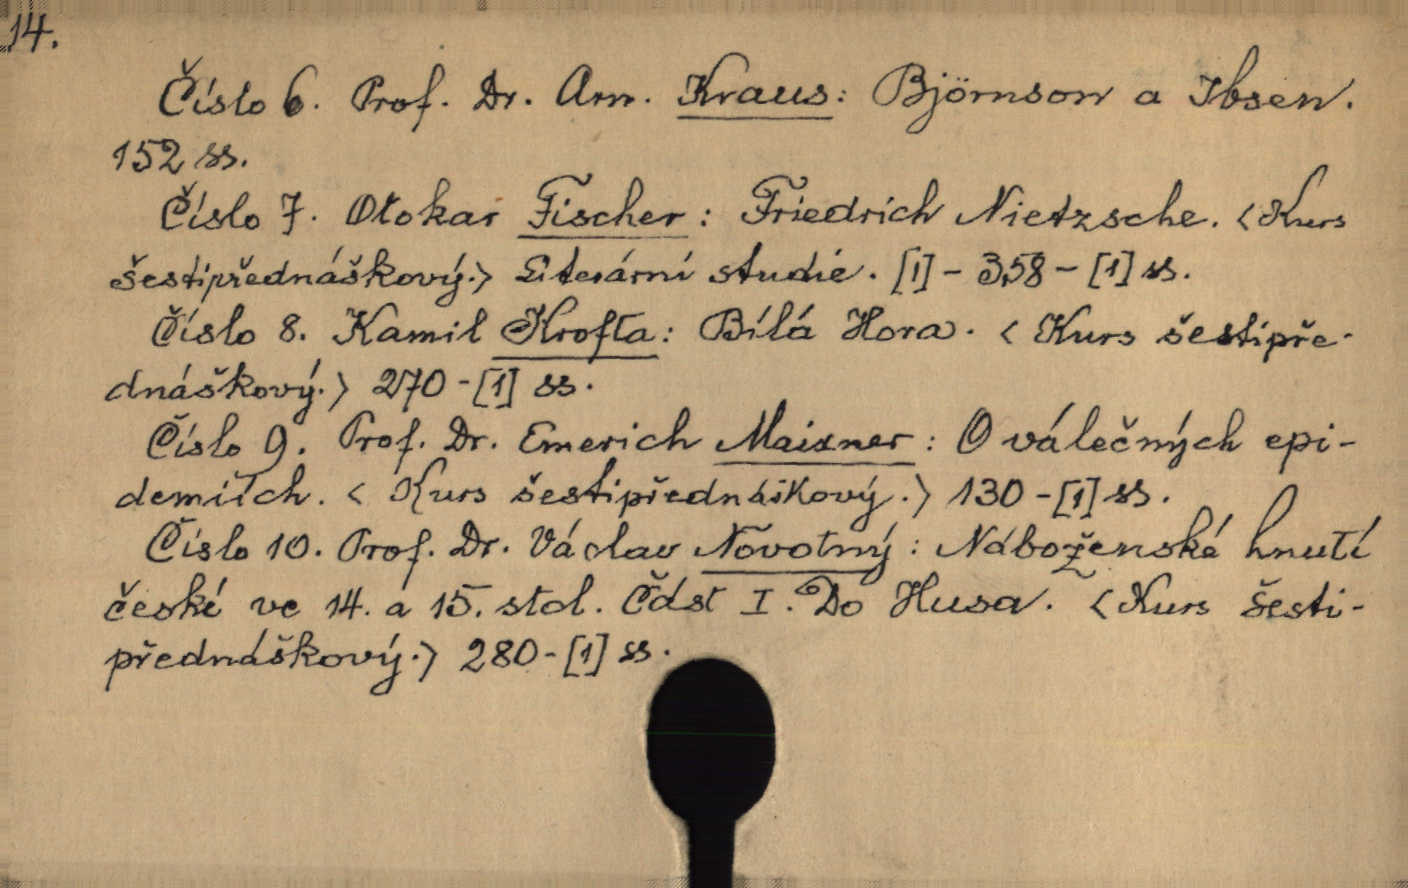 14.
Číslo 6. Prof. Dr. Arn. Kraus: Björnson a Ibsen.
152 ss.
Číslo 7. Otokar Fischer: Friedrich Nietzsche. <Kurs
šestipřednáškový.> Literární studie. [1] - 358 - [1] ss.
Číslo 8. Kamil Krofta: Bílá Hora. <Kurs šestipře-
dnáškový.> 270 - [1] ss.
Číslo 9. Prof. Dr. Emerich Maixner: O válečných epi-
demiích. <Kurs šestipřednáškový.> 130 - [1] ss.
Číslo 10. Prof. Dr. Václav Novotný: Náboženské hnutí
české ve 14. a 15. stol. Část I. Do Husa. <Kurs šesti-
přednáškový.> 280 - [1] ss.